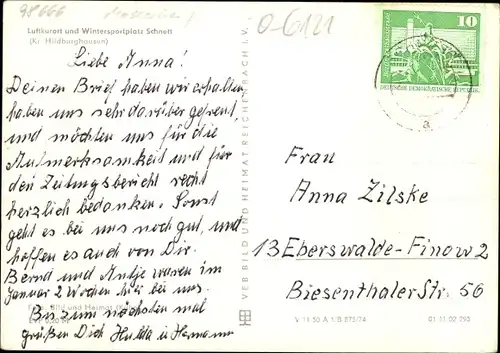 98666
O-6121
Luftkurort und Wintersportplatz Schnett
(Kr. Hildburghausen)
Liebe Anna!
Deinen Brief haben wir erhalten,
haben uns sehr darüber gefreut,
und möchten uns für die
Aufmerksamkeit und für
den Zeitungsbericht recht
herzlich bedanken. Sonst
geht es bei uns noch gut, und
hoffen es auch von Dir.
Bernd und Antje waren im
Januar 2 Wochen hier bei uns.
Bis zum nächsten mal
grüßen Dich Hulda u. Hermann
Bild und Heimat
VEB BILD UND HEIMAT REICHENBACH I. V.
10
DEUTSCHE DEMOKRATISCHE REPUBLIK
a
Frau
Anna Zilske
13 Eberswalde-Finow 2
Biesenthaler Str. 56
V 11 50 A 1/B 875/74
01 11 02 293